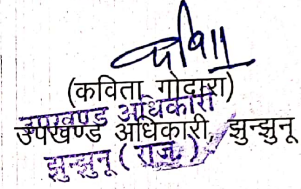 कविता
(कविता गोदारा)
उपखण्ड अधिकारी
उपखण्ड अधिकारी, झुन्झुनू
झुन्झुनू (राज.)